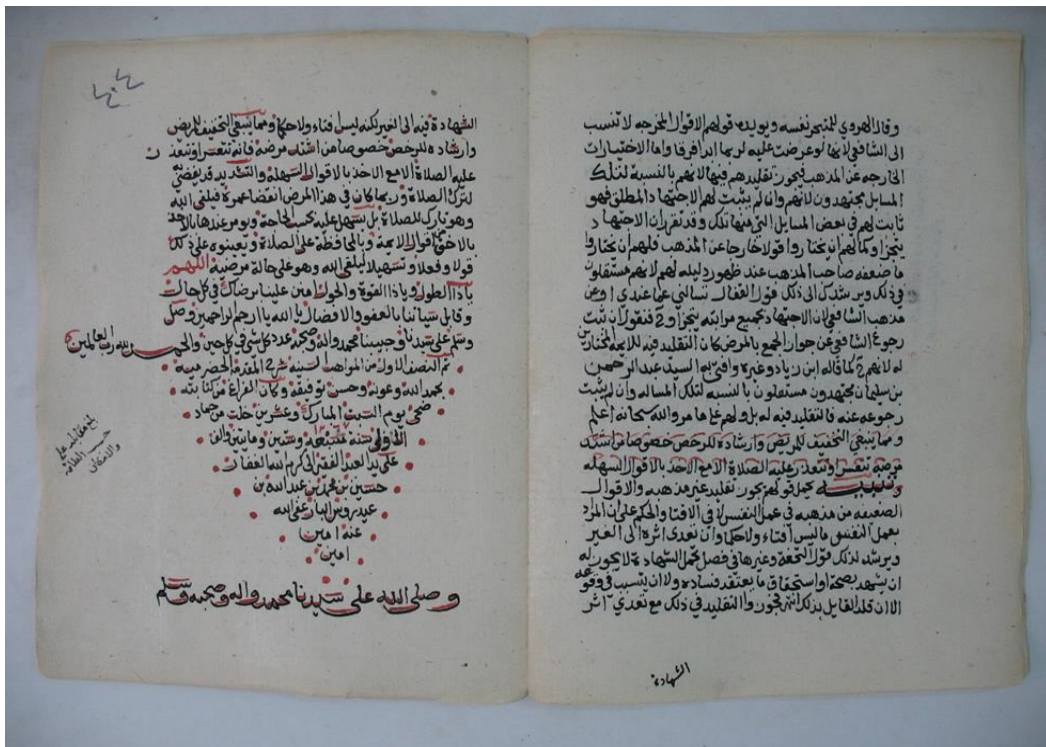 وقال الهروي للمتبحر نفسه ويويده قولهم الاقوال المخرجه لا تنسب
الى الشافعي لانها لو عرضت عليه لربما ابدا فرقا واما الاختيارات
الخارجه عن المذهب فيجوز تقليدهم فيها لانهم بالنسبة لتلك
المسايل مجتهدون لانهم وان لم يثبت لهم الاجتهاد المطلق فهو
ثابت لهم في بعض المسايل التي منها تلك وقد تقرر ان الاجتهاد
يتجزا وكما لهم ان يختاروا قولا خارجا عن المذهب فلهم ان يختاروا
ما ضعفه صاحب المذهب عند ظهور دليله لهم لانهم مستقلون
في ذلك ويرشدك الى ذلك قول القفال تسالني عما عندي او عن
مذهب الشافعي لان الاجتهاد بجميع مراتبه يتجزا و2 فنقول ان ثبت
رجوع الشافعي عن جواز الجمع بالمرض كان التقليد فيه للايمه المختارين
له لانهم 2 كما قاله ابن زياد وغيره وافتى به السيد عبد الرحمن
بن سليمان مجتهدون مستقلون بالنسبه لتلك المساله وان لم يثبت
رجوعه عنه فالتقليد فيه له بل ولهم على ما مر والله سبحانه اعلم
ومما ينبغي التخفيف للمريض وارشاده للرخص خصوصا من اشتد
مرضه تتعسر او تتعذر عليه الصلاة الا مع الاخذ بالاقوال السهله
وتنبيه يحمل قولهم يجوز تقليد غير مذهبه والاقوال
الضعيفه من مذهبه في عمل النفس لا في الافتا والحكم على ان المراد
بعمل النفس ماليس افتاء ولا حكما وان تعدى اثره الى الغير
ويرشد لذلك قول التحفة وغيرها في فصل تحمل الشهادة لا يجوز له
ان يشهد بصحة او استحقاق ما يعتقد فساده ولا ان يتسبب في وقوعه
الا ان قلد القايل بذلك انتهى فجوزوا التقليد في ذلك مع تعدي اثر
الشهادة
الشهادة فيه الى الغير لكنه ليس افتاء ولا حكما ومما ينبغي التخفيف للمريض
وارشاده للرخص خصوصا من اشتد مرضه فانه تتعسر او تتعذر
عليه الصلاة الا مع الاخذ بالاقوال السهله والتشديد قد يفضي به
لترك الصلاة وربما كان في هذا المرض انقضا عمره فيلقى الله
وهو تارك للصلاة بل يسهل عليه بحسب الحاجة ويومر عندها بالاخذ
بالاخف من اقوال الايمة وبالمحافظة على الصلاة ويعينوه على ذلك
قولا وفعلا وتسهيلا ليلقى الله وهو على حالة مرضية اللهم
يا ذا الطول ويا ذا القوة والحول امنن علينا برضاك في كل حال
وقابل سياتنا بالعفو والافضال يا الله يا ارحم الراحمين وصل
وسلم على سيدنا وحبيبنا محمد واله وصحبه عدد كل شي في كل حين والحمد لله رب العالمين
تم النصف الاول من المواهب السنيه شرح المقدمة الحضرميه
بحمد الله وعونه وحسن توفيقه وكان الفراغ من كتابته
ضحى يوم السبت المبارك وعشرين خلت من جماد
الاولى سنه وستين ومايتين والف
على يد العبد الفقير الى كرم الله الغفار
حسين بن محمد بن عبد الله بن
عيدروس البار عفى الله
عنه امين
امين
وصلى الله على سيدنا محمد واله وصحبه وسلم
بلغ مقابله على
حسب الطاقه
والامكان